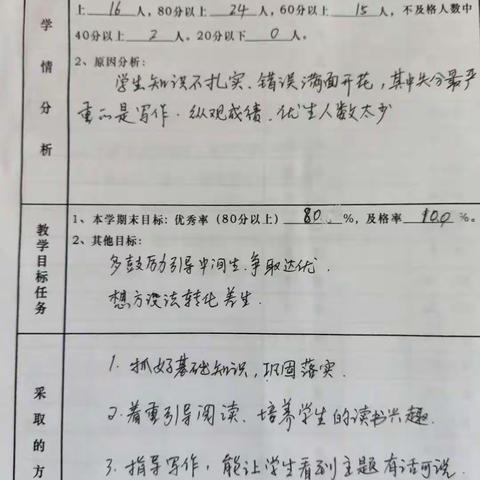 学情分析
上 16 人，80分以上 24 人，60分以上 15 人，不及格人数中
40分以上 2 人，20分以下 0 人。
2、原因分析：
学生知识不扎实、错误满面开花，其中失分最严
重的是写作．纵观成绩、优生人数太少
教学目标任务
1、本学期末目标：优秀率（80分以上） 80 %，及格率 100 %。
2、其他目标：
多鼓励引导中间生．争取达优．
想方设法转化差生．
采取的方
1. 抓好基础知识，巩固落实．
2. 着重引导阅读、培养学生的读书兴趣．
3. 指导写作，能让学生看到主题有话可说．